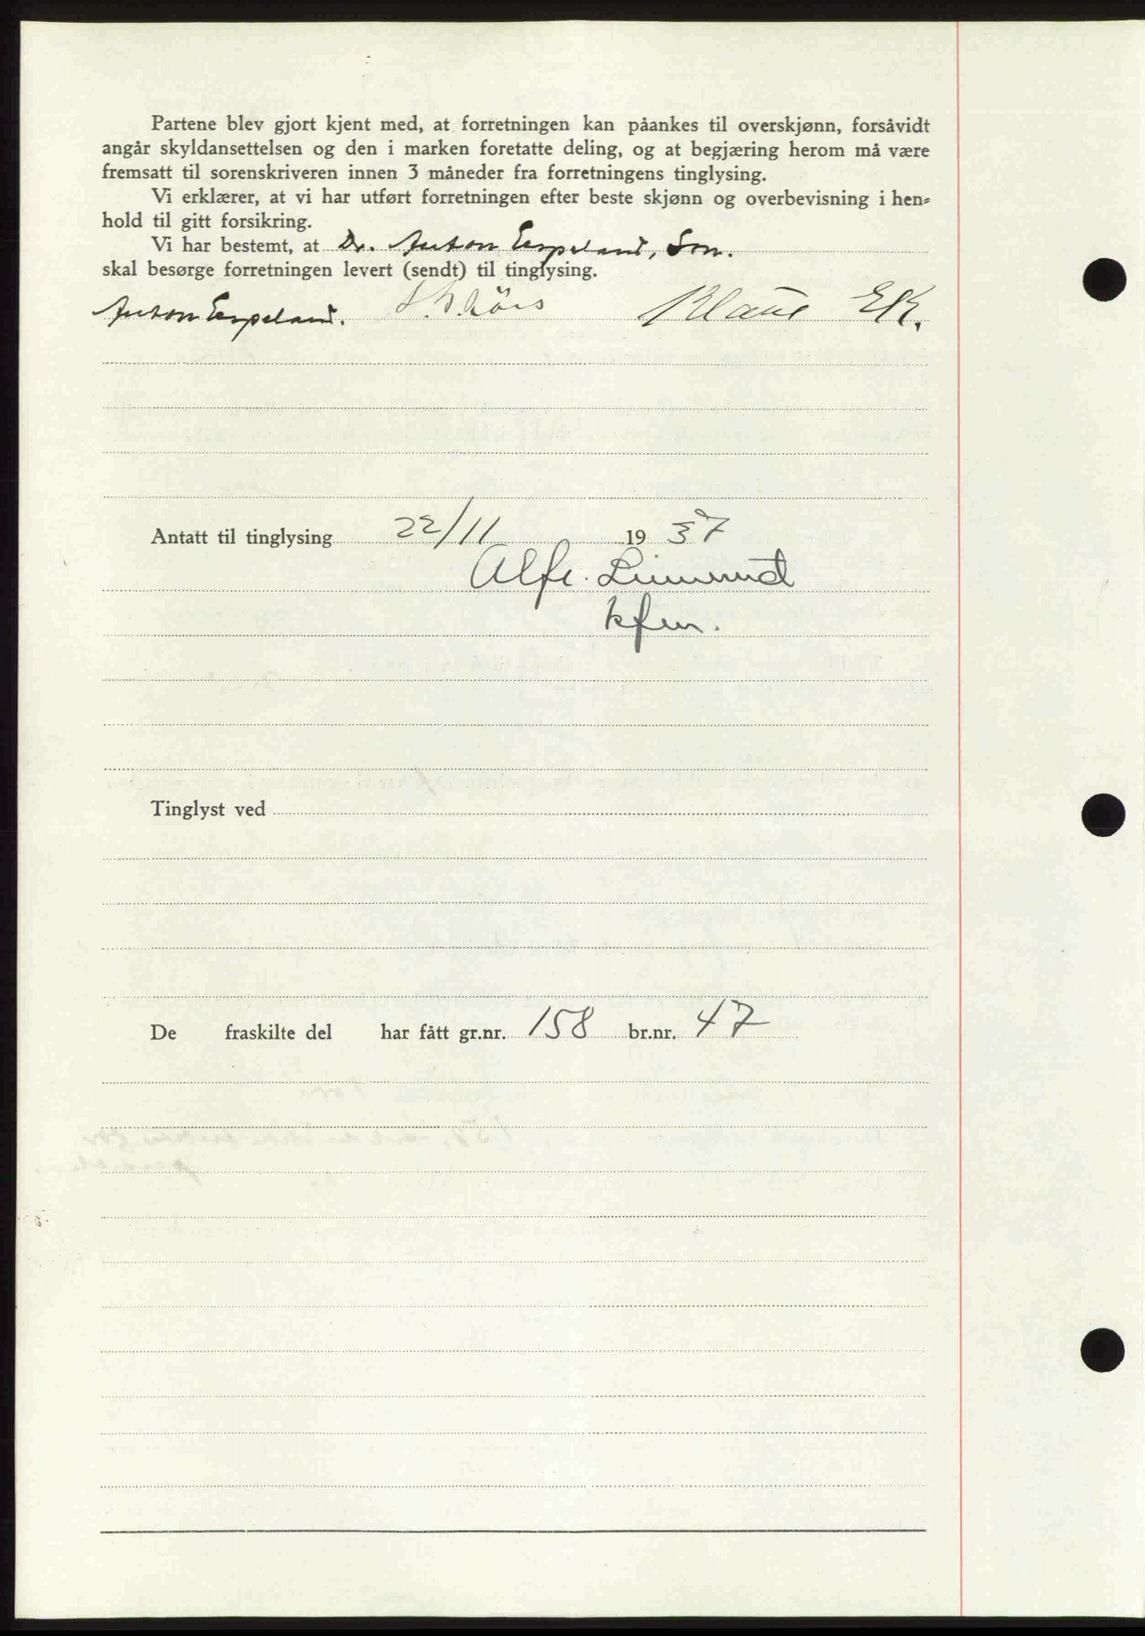 Partene blev gjort kjent med, at forretningen kan påankes til overskjønn, forsåvidt
angår skyldansettelsen og den i marken foretatte deling, og at begjæring herom må være
fremsatt til sorenskriveren innen 3 måneder fra forretningens tinglysing.
Vi erklærer, at vi har utført forretningen efter beste skjønn og overbevisning i hen-
hold til gitt forsikring.
Vi har bestemt, at Dr. Anton Espeland, Son.
skal besørge forretningen levert (sendt) til tinglysing.
Anton Espeland. Klaus Elk.
Antatt til tinglysing 22/11 19 37
Alfr.
kfm.
Tinglyst ved
De fraskilte del har fått gr.nr. 158 br.nr. 47